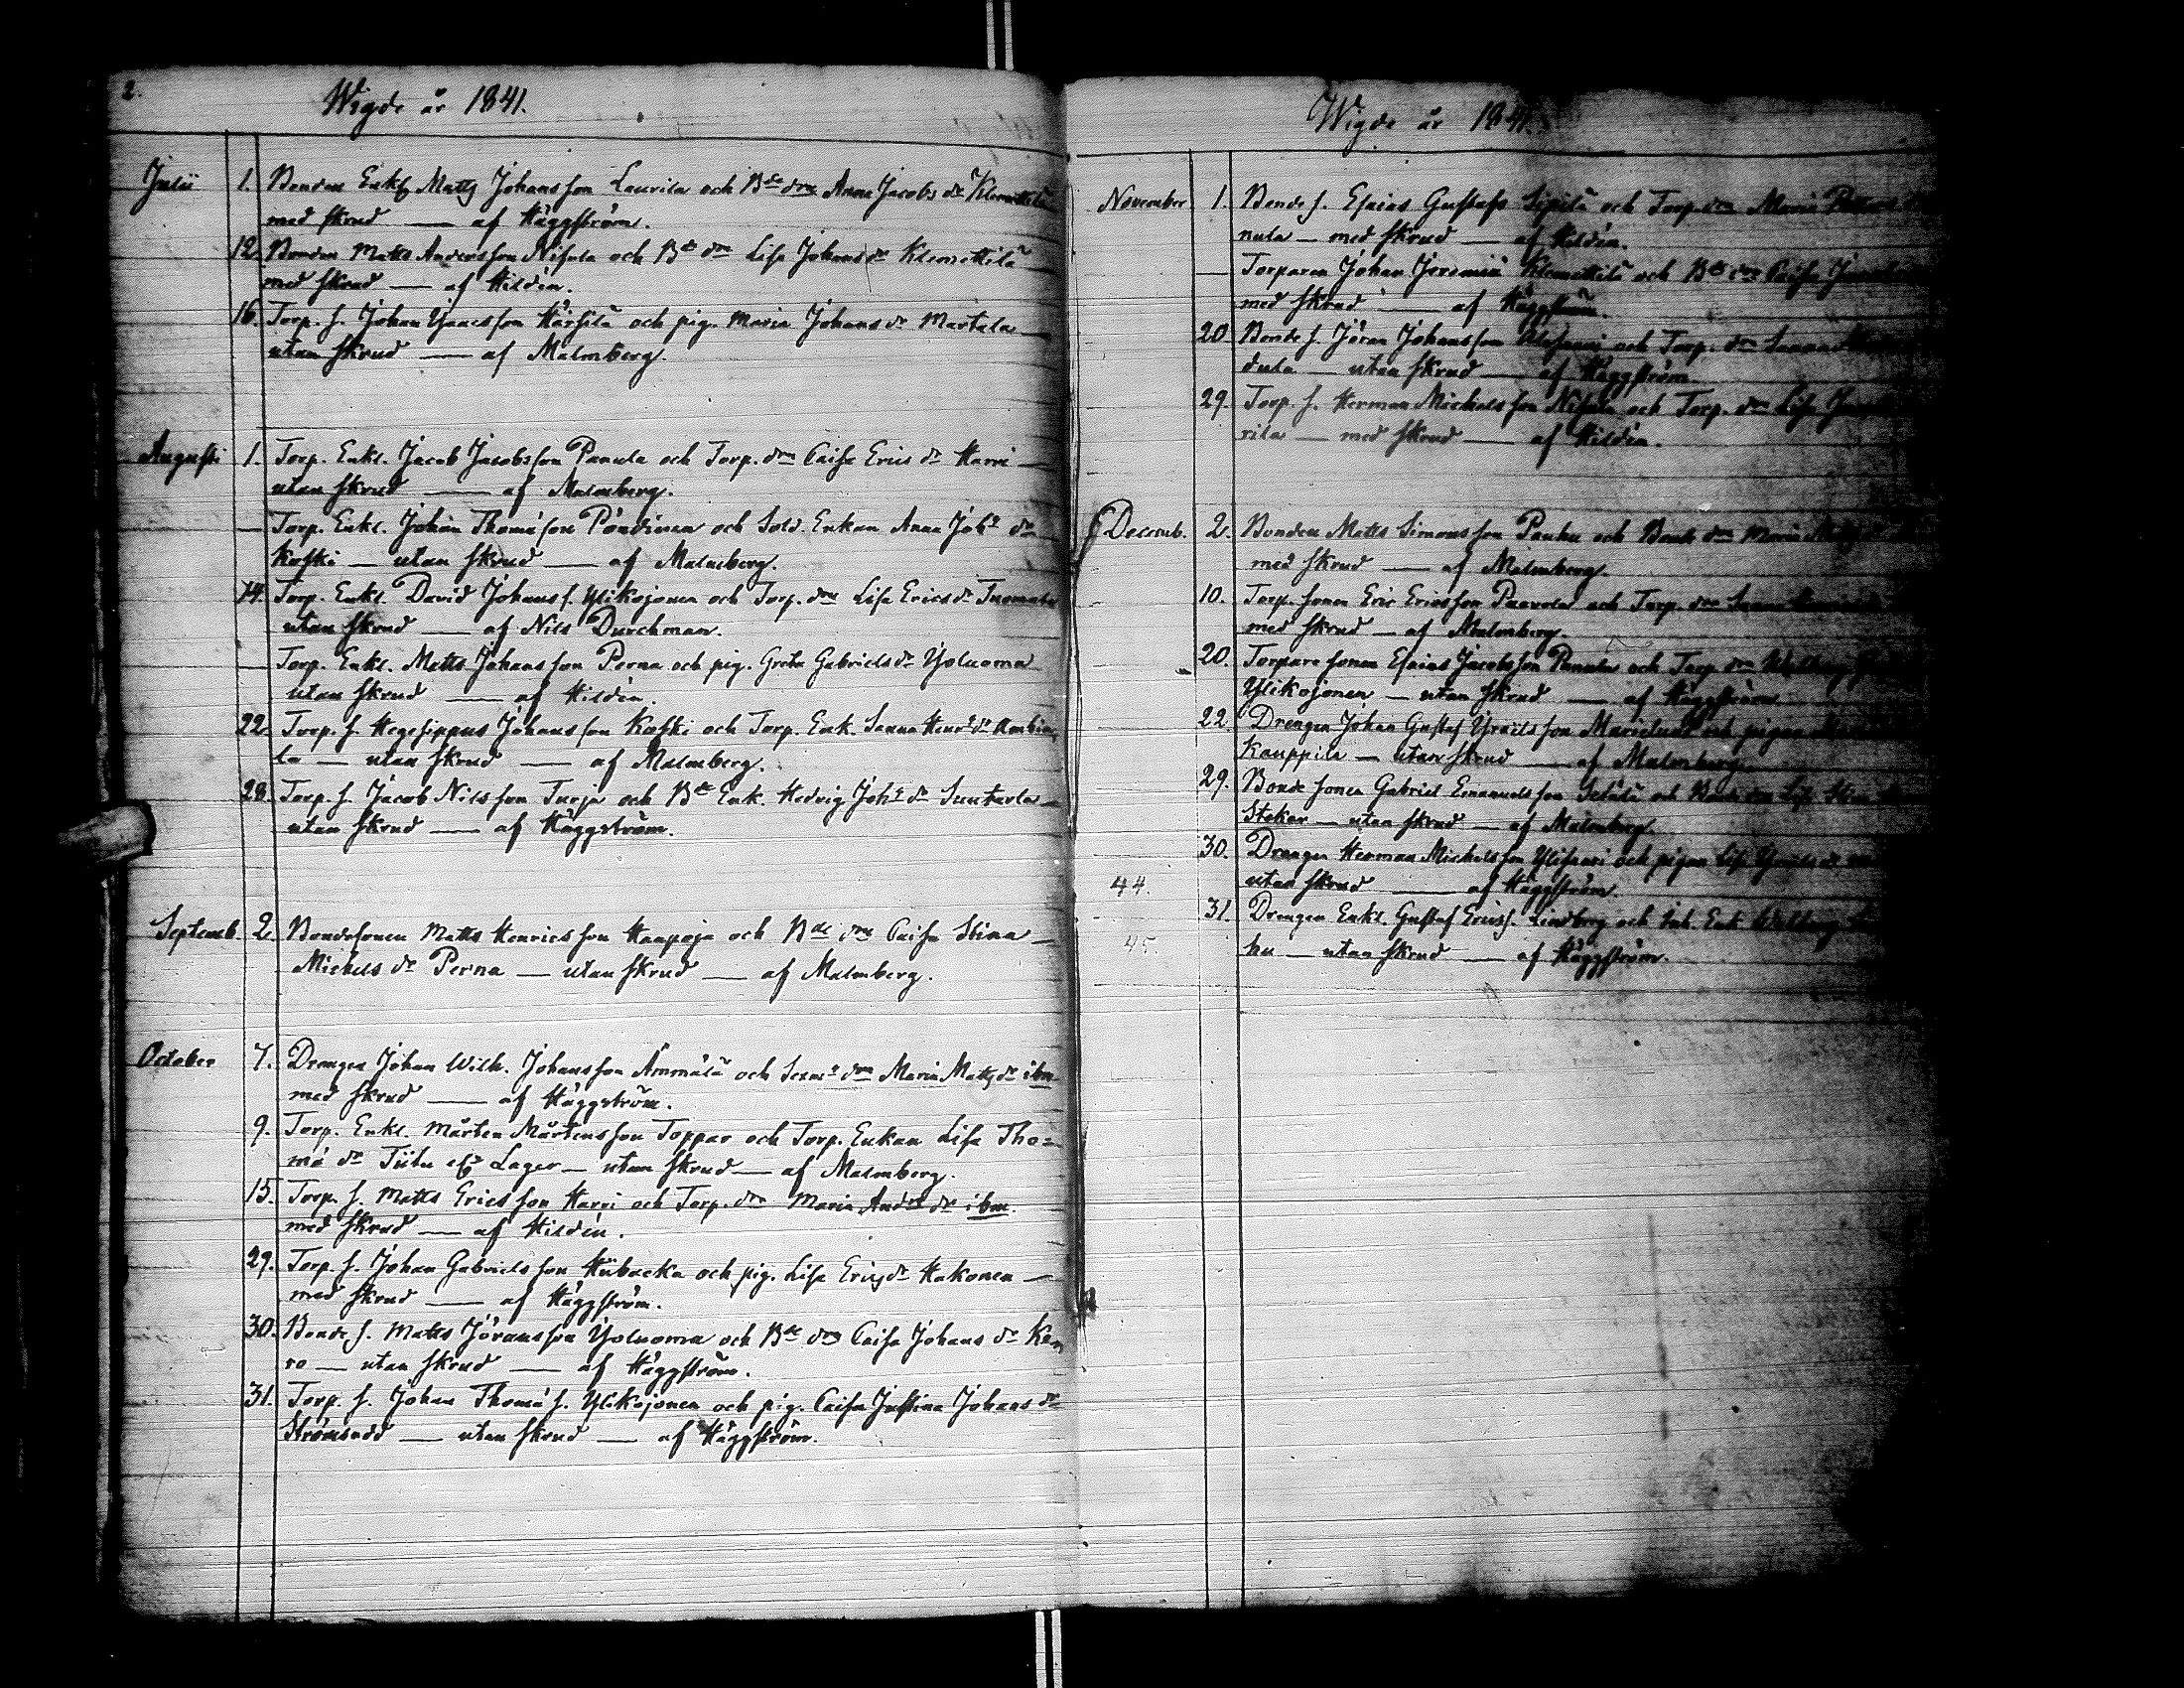 2.
Wigde år 1841.
Julii 1. Bonden Enkl. Matts Johansson Laurila och Bde drn Anna Jacobs dr Klemettilä
med skrud — af Häggström.
12. Bonden Matts Andersson Nisula och Bde drn Lisa Johans dr Klemettilä
med skrud — af Hildén.
16. Torp. s. Johan Isacsson Härsilä och pig. Maria Johans dr Martala
utan skrud — af Malmberg.
Augusti 1. Torp. Enkl. Jacob Jacobsson Panula och Torp. drn Caisa Erics dr Harri —
utan skrud — af Malmberg.
— Torp. Enkl. Johan Thomásson Pöndinen och Sold. Enkan Anna Johs dr
Koski — utan skrud — af Malmberg.
14. Torp. Enkl. David Johans s. Ylikojonen och Torp. drn Lisa Erics dr Tuomala
utan skrud — af Nils Durchman.
— Torp. Enkl. Matts Johansson Perna och pig. Greta Gabriels dr Yoluoma
utan skrud — af Hildén.
22. Torp. s. Hegesippus Johansson Koski och Torp. Enk. Sanna Henrs dr
la — utan skrud — af Malmberg.
28. Torp. s. Jacob Nilsson Turja och Bde Enk. Hedvig Johs dr Luntarla —
utan skrud — af Häggström.
Septemb. 2. Bondesonen Matts Henricsson Haapoja och Bde drn Caisa Stina —
Michels dr Perna — utan skrud — af Malmberg.
October 7. Drengen Johan Wilh. Johansson Ämmälä och drn Maria Matts dr ibm
med skrud — af Häggström.
9. Torp. Enkl. Mårten Mårtensson Toppar och Torp. Enkan Lisa Tho=
má dr Tiitu Lager — utan skrud — af Malmberg.
15. Torp. s. Matts Ericsson Harri och Torp. drn Maria Andrs dr ibm.
med skrud — af Hildén.
29. Torp. s. Johan Gabrielsson Hiibacka och pig. Lisa Erics dr Hakonen —
med skrud — af Häggström.
30. Bonde s. Matts Jöransson Yoluoma och Bde drn Caisa Johans dr
ro — utan skrud — af Häggström.
31. Torp. s. Johan Thomá s. Ylikojonen och pig. Caisa Justina Johans dr
Strömbäck — utan skrud — af Häggström.
Wigde år 1841.
November 1. Bonde s. Esaias Gustafss Sipilä och Torp. drn Maria
nula — med skrud — af Hildén.
— Torparen Johan Jeremiä Klemettilä och Bde drn Caisa
med skrud — af Häggström.
20. Bonde s. Jöran Johansson och Torp. drn Sanna
dula — utan skrud — af Häggström.
29. Torp. s. Herman Michelsson Nisula och Torp. drn Lisa
rila — med skrud — af Hildén.
Decemb. 2. Bonden Matts Simonsson Panhu och Bonde drn Maria
med skrud — af Malmberg.
10. Torp. sonen Eric Ericsson Paavola och Torp. drn Sanna
med skrud — af Malmberg.
20. Torpare sonen Esaias Jacobsson Panula och Torp. drn
Ylikojonen — utan skrud — af Häggström.
22. Drengen Johan Gustaf Israelsson och pigan
Kauppila — utan skrud — af Malmberg.
29. Bonde sonen Gabriel Emanuelsson och Bonde drn Lisa
Steker — utan skrud — af Malmberg.
30. Drengen Herman Michelsson Ylisaari och pigan Lisa
utan skrud — af Häggström.
44.
31. Drengen Enkl. Gustaf Erics s. Lindberg och Enk. Walborg
hu — utan skrud — af Häggström.
45.